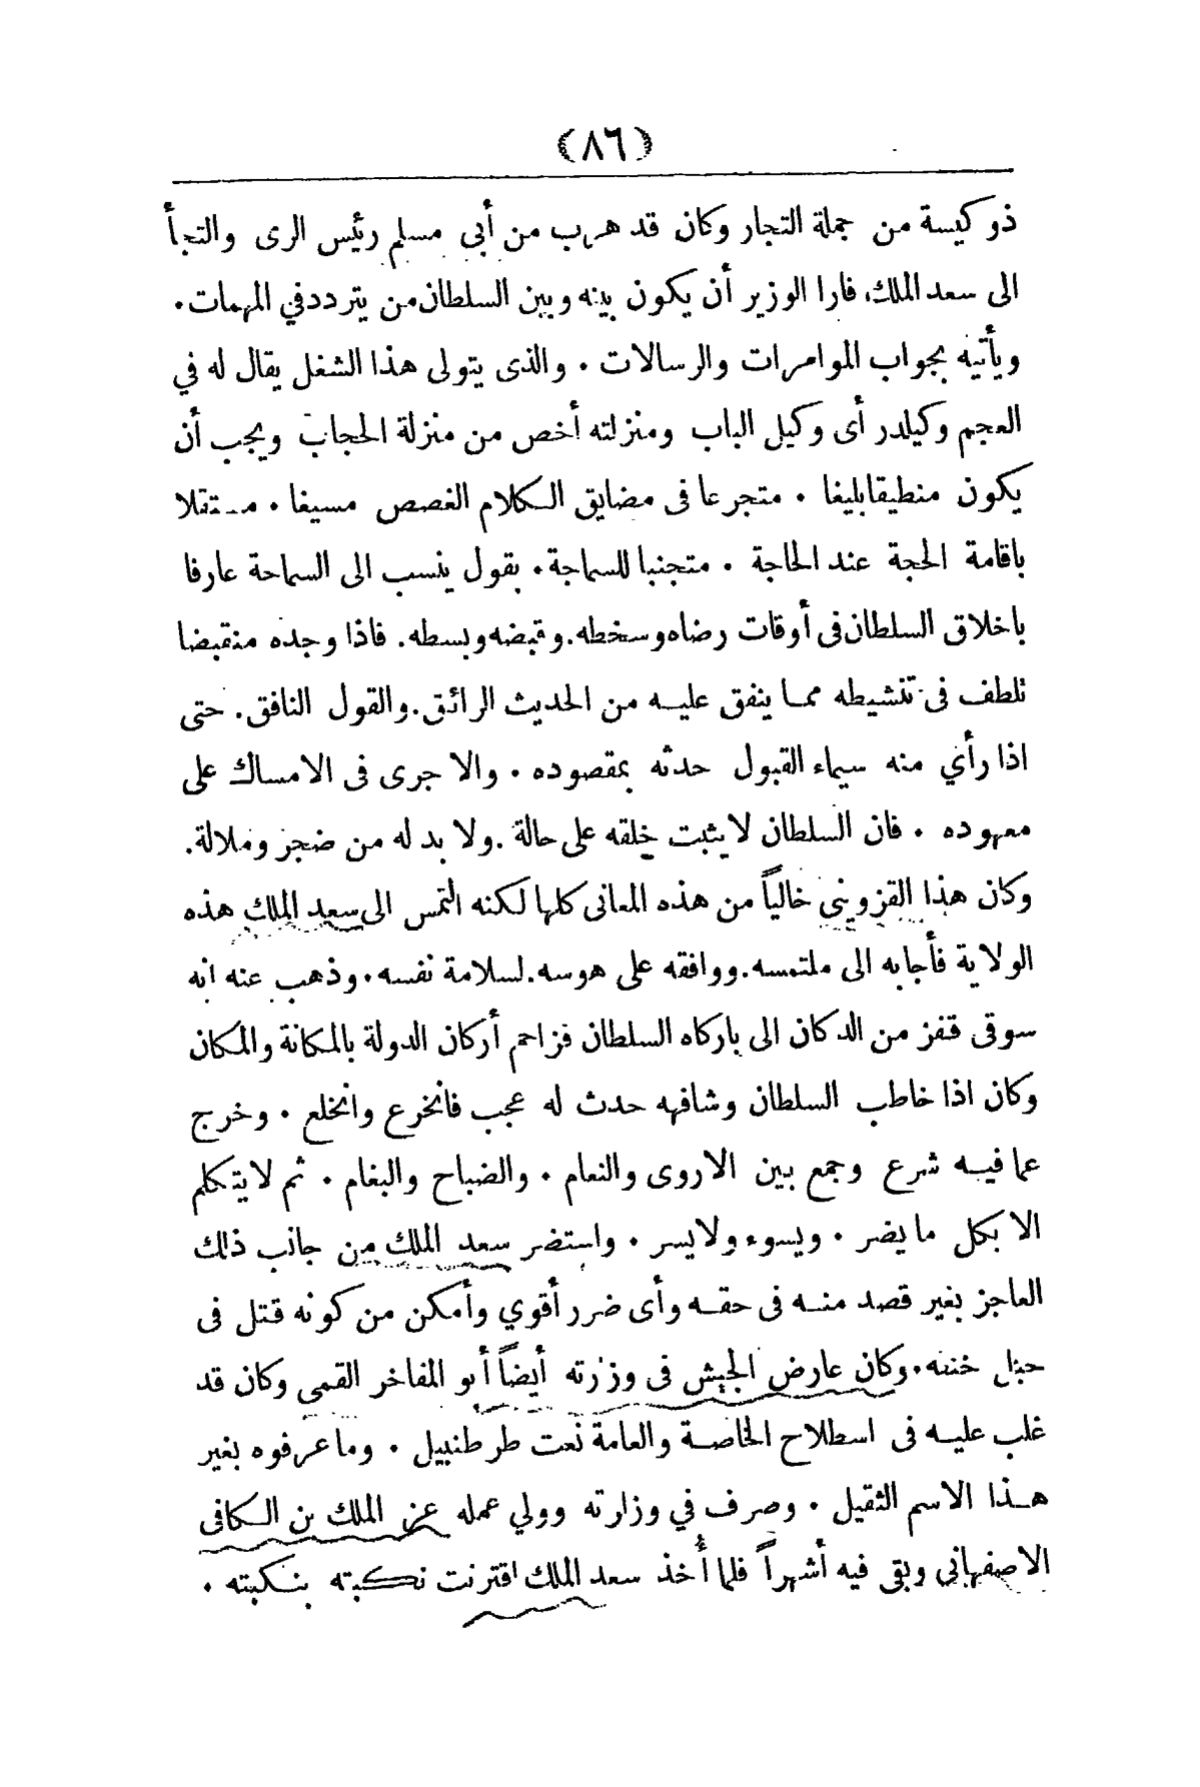 (٨٦)
ذو كيسة من جملة التجار وكان قد هرب من أبي مسلم رئيس الرى والتجأ
الى سعد الملك، فارا الوزير أن يكون بينه وبين السلطان من يتردد في المهمات.
ويأتيه بجواب الموامرات والرسالات . والذى يتولى هذا الشغل يقال له في
العجم وكيلدر أى وكيل الباب ومنزلته أخص من منزلة الحجاب ويجب أن
يكون منطيقا بليغا . متجرعا فى مضايق الكلام الغصص مسيغا . مستقلا
باقامة الحجة عند الحاجة . متجنبا للسماجة. بقول ينسب الى السماحة عارفا
باخلاق السلطان فى أوقات رضاه وسخطه. وقبضه وبسطه. فاذا وجده منقبضا
تلطف فى تنشيطه مما ينفق عليه من الحديث الرائق. والقول النافق. حتى
اذا رأي منه سيماء القبول حدثه بمقصوده . والا جرى فى الامساك على
معهوده . فان السلطان لا يثبت خلقه على حالة . ولا بد له من ضجر وملالة.
وكان هذا القزوينى خالياً من هذه المعانى كلها لكنه التمس الى سعيد الملك هذه
الولاية فأجابه الى ملتمسه. ووافقه على هوسه. لسلامة نفسه. وذهب عنه انه
سوقى قفز من الدكان الى باركاه السلطان فزاحم أركان الدولة بالمكانة والمكان
وكان اذا خاطب السلطان وشافهه حدث له عجب فانخرع وانخلع . وخرج
عما فيه شرع وجمع بين الاروى والنعام . والضباح والبغام . ثم لا يتكلم
الا بكل ما يضر . ويسوء ولا يسر . واستضر سعد الملك من جانب ذلك
العاجز بغير قصد منه فى حقه وأى ضرر أقوي وأمكن من كونه قتل فى
حبل خنقه. وكان عارض الجيش فى وزرته أيضاً أبو المفاخر القمى وكان قد
غلب عليه فى اسطلاح الخاصة والعامة نعت طرطنبيل . وما عرفوه بغير
هذا الاسم الثقيل . وصرف في وزارته وولي عمله عز الملك بن الكافى
الاصفهاني وبقى فيه أشهراً فلما أُخذ سعد الملك اقترنت نكبته بنكبته .